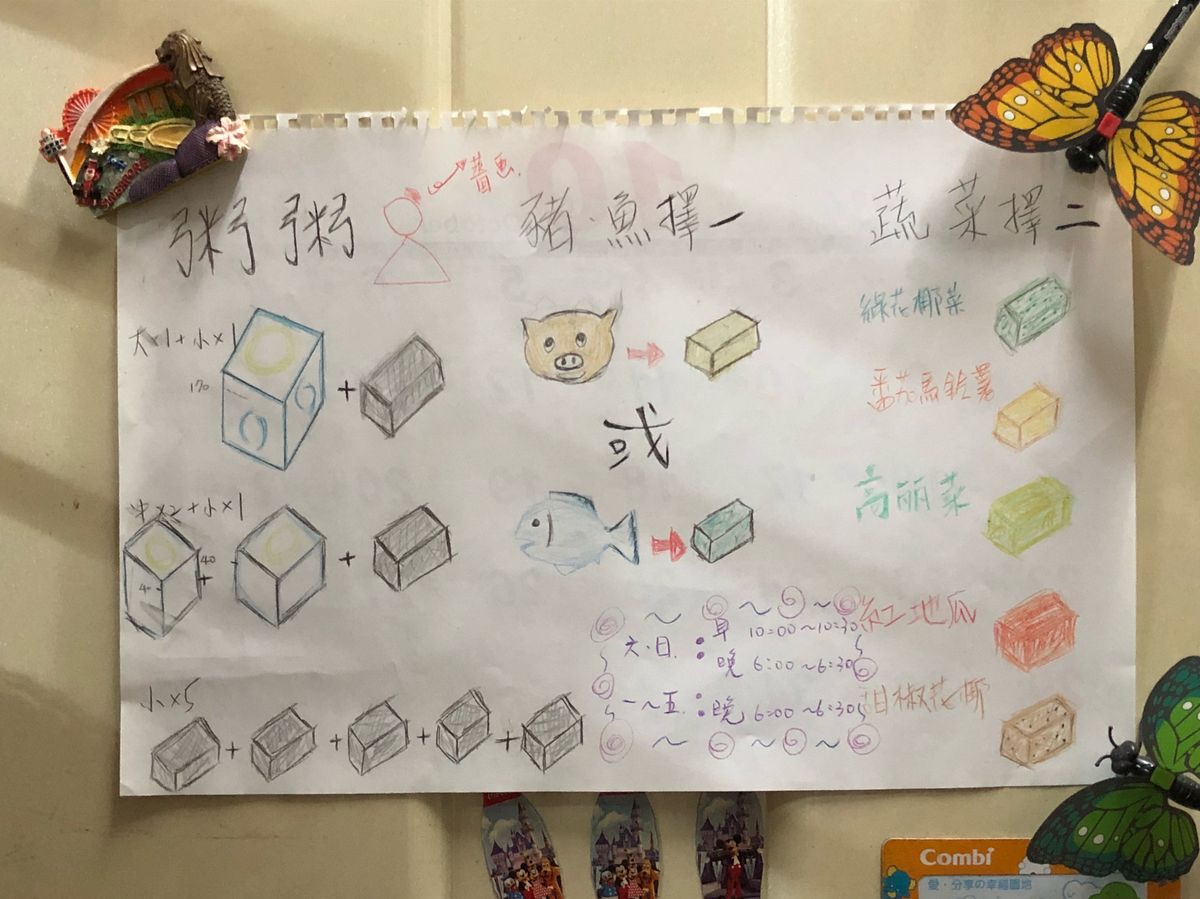 粥粥
薔画.
豬.魚擇一
蔬菜擇二
大×1+小×1
170
+
或
中×2+小×1
40
40
+
+
小×5
+
+
+
+
綠花椰菜
番茄馬鈴薯
高丽菜
紅地瓜
甜椒花椰
六.日.：早 10:00~10:30
晚 6:00~6:30
一~五：晚 6:00~6:30
SINGAPORE
Combi
愛・分享の幸福園地